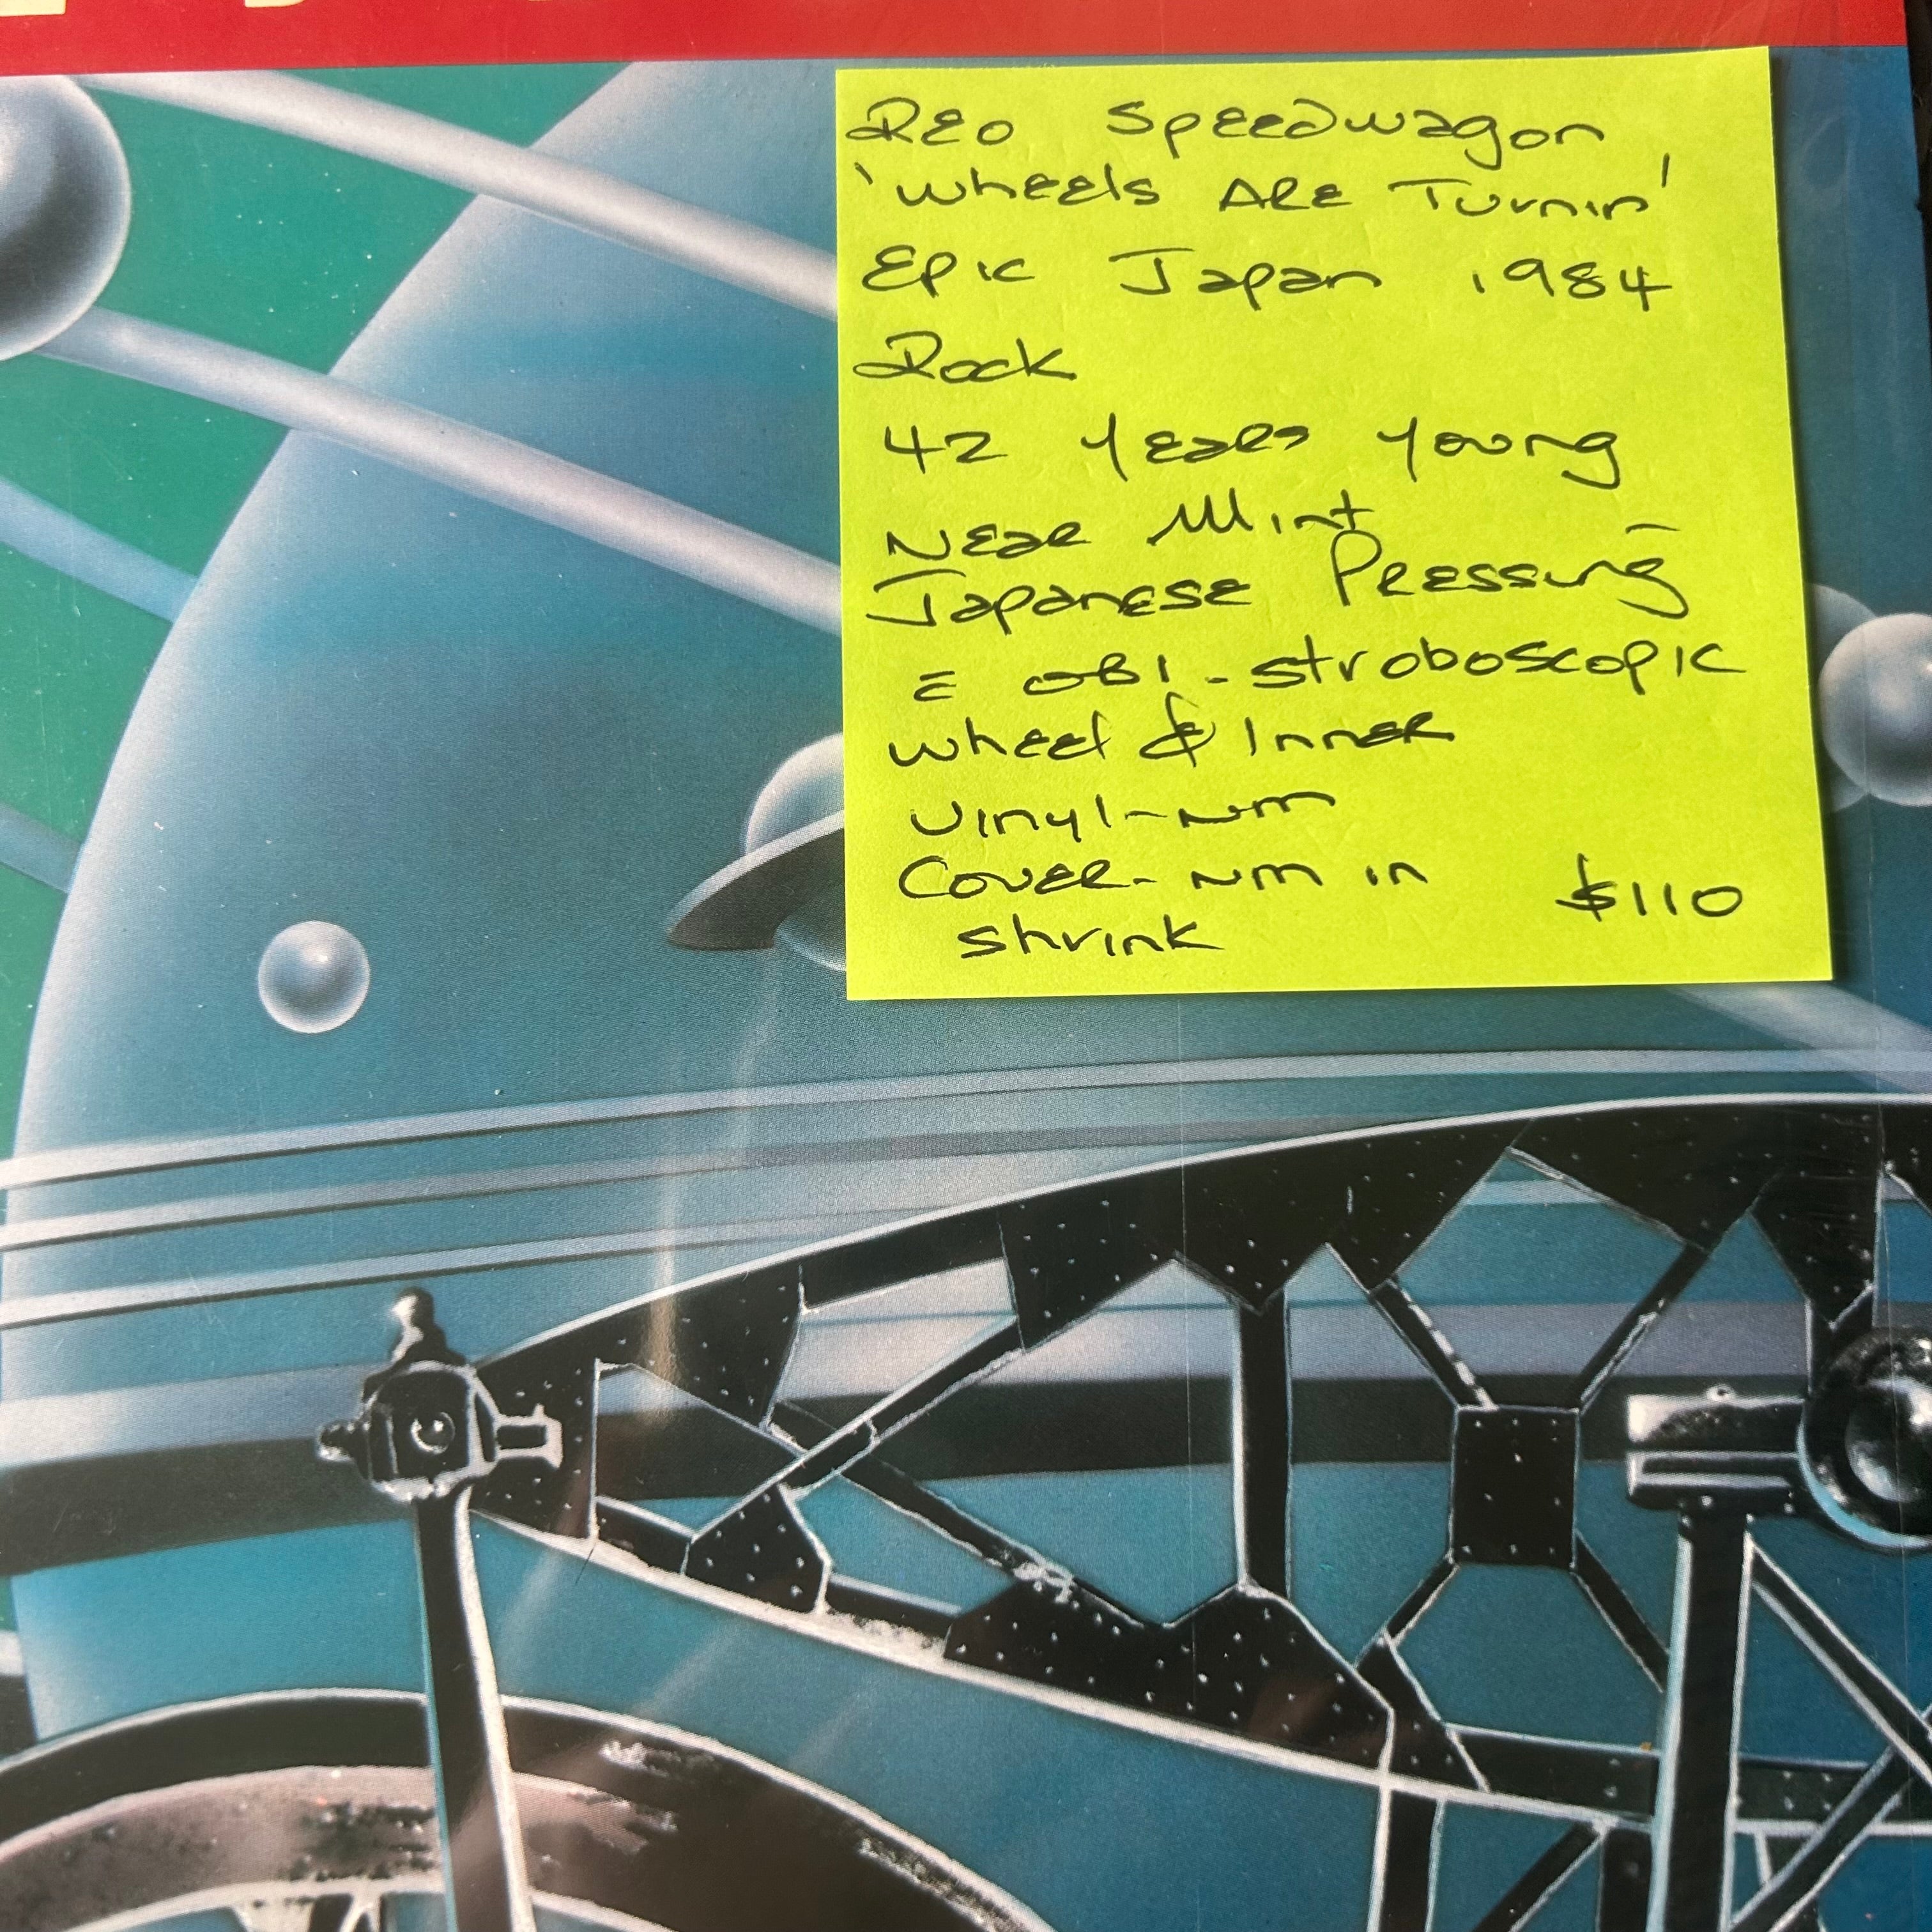 REO Speedwagon
'Wheels Are Turnin'
Epic Japan 1984
Rock
42 Years Young
Near Mint
Japanese Pressing
c̄ OBI - stroboscopic
wheel & Inner
Vinyl - NM
Cover - NM in
shrink
$110